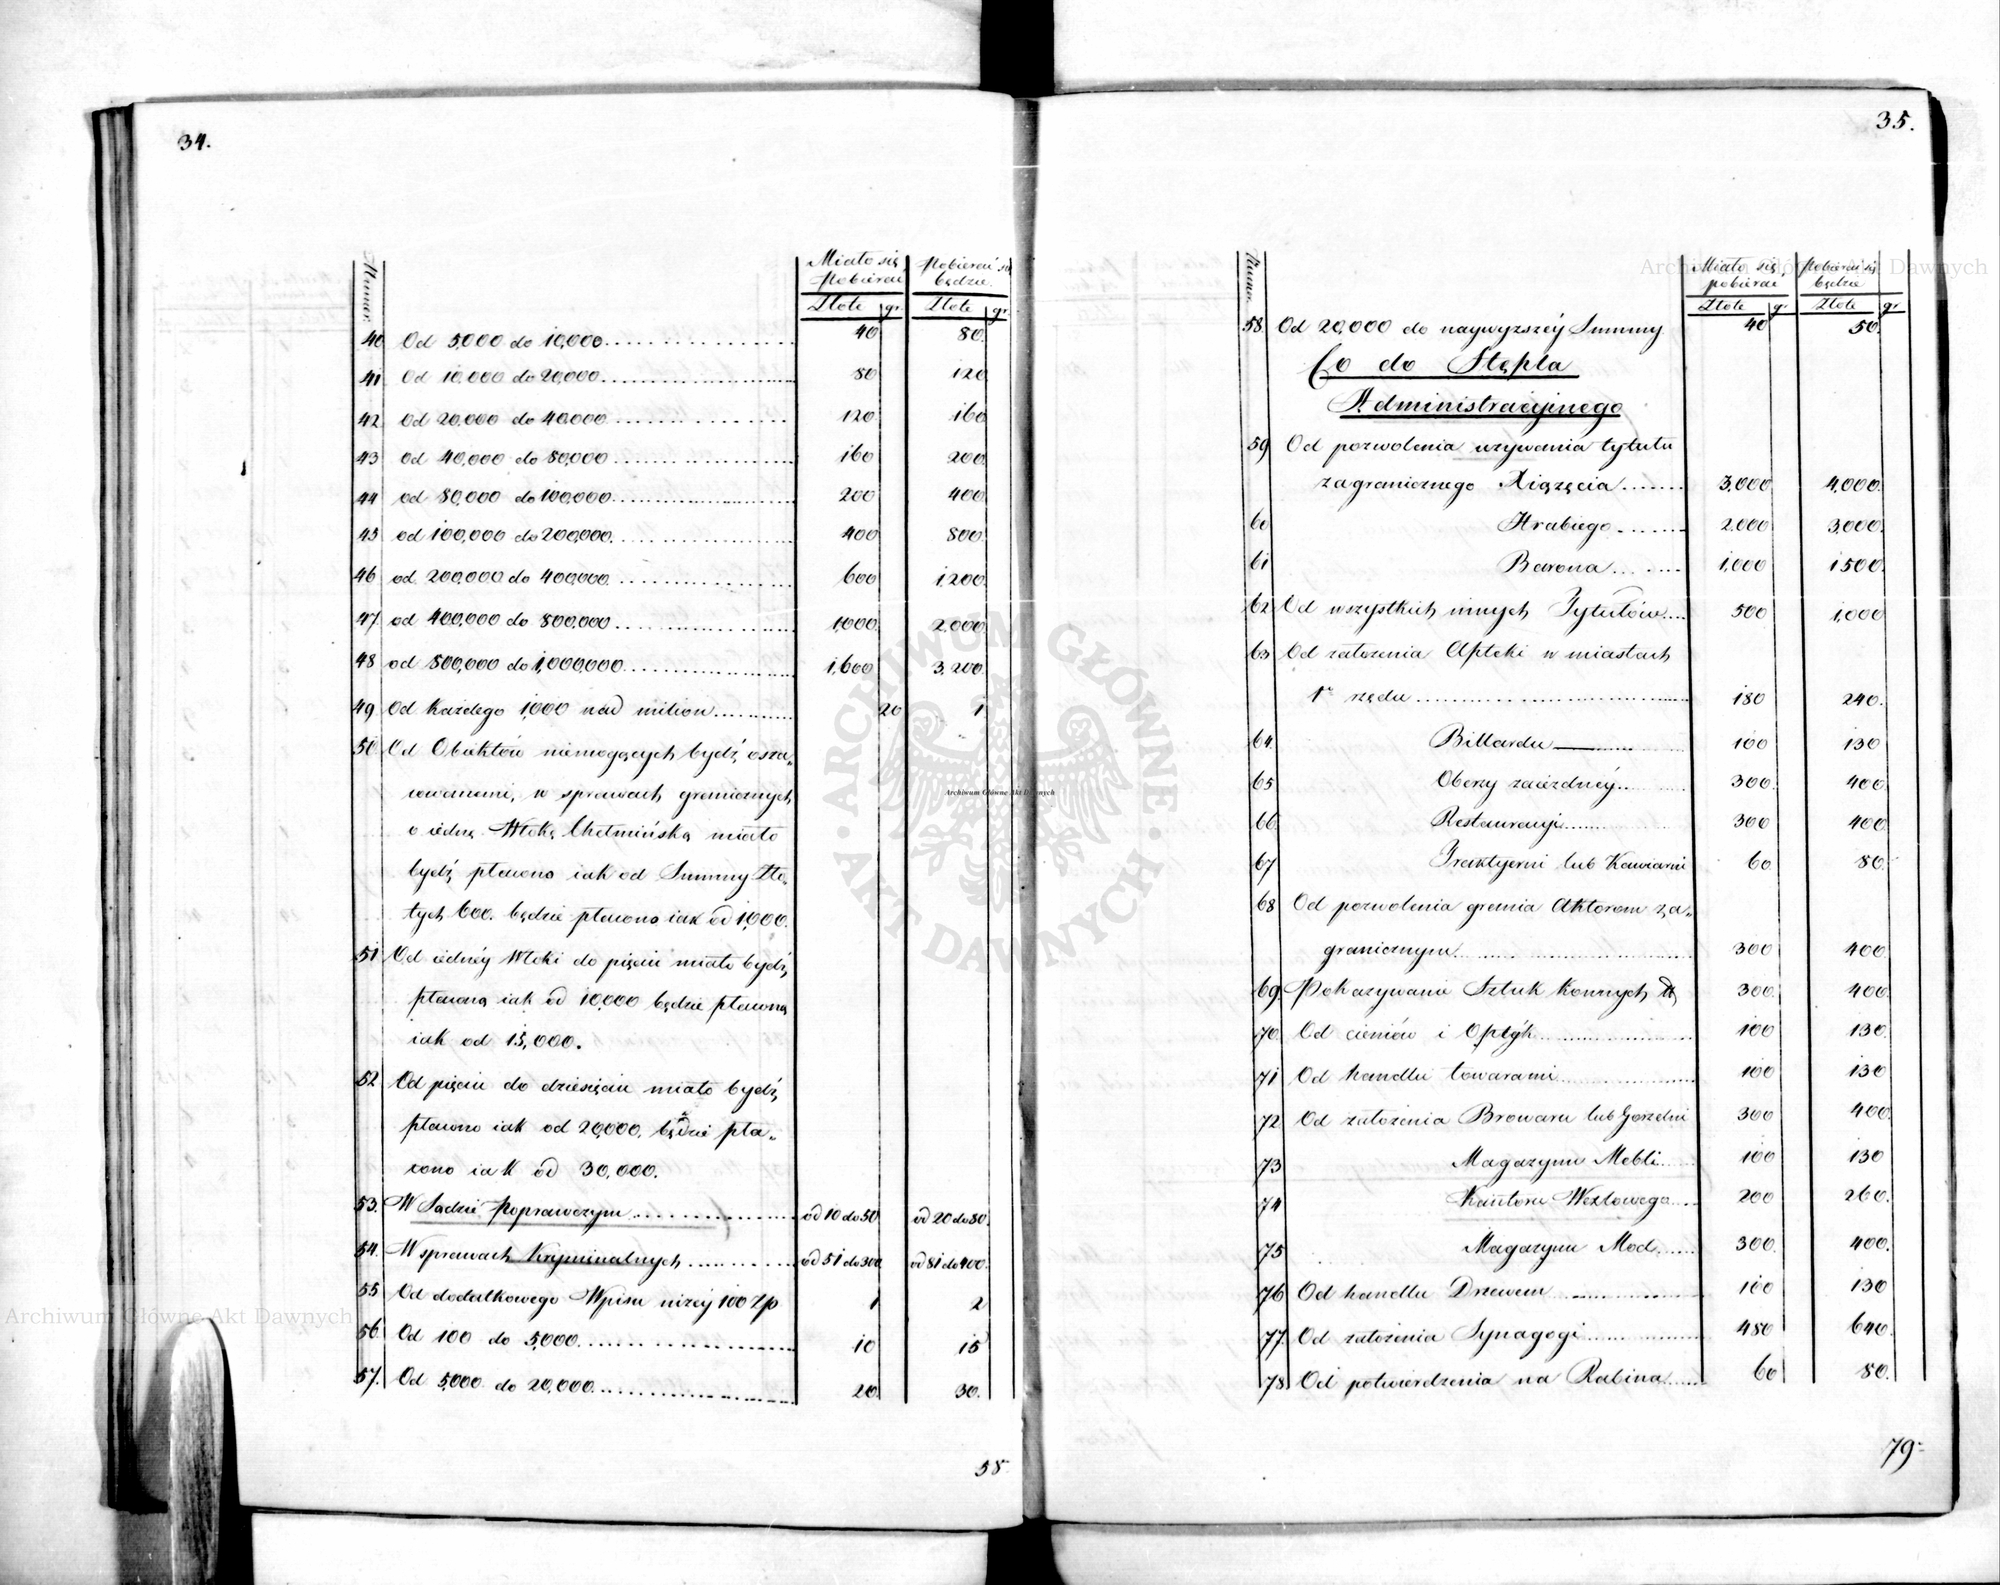 34.
Numer.
Miało się pobierać
Pobierać się będzie.
Złote gr. Złote gr.
40 Od 5,000 do 10,000 40 80.
41 Od 10,000 do 20,000 80 120
42 Od 20,000 do 40,000 120 160
43 Od 40,000 do 80,000 160 200
44 od 80,000 do 100,000 200 400
45 od 100,000 do 200,000. 400 800.
46 od 200,000 do 400,000 600 1,200.
47 od 400,000 do 800,000 1,000. 2,000.
48 od 800,000 do 1,000,000 1,600 3,200.
49 Od Każdego 1,000 nad milion 20 1
50 Od Obiektów niemogących bydź osza„
cowanemi, w sprawach granicznych
o iedną Włokę Chełmińską miało
bydź płacono iak od Summy Zło„
tych 600. będzie płacono iak od 1,000.
51 Od iedney Włoki do pięciu miało bydź
płacono iak od 10,000 będzie płacono
iak od 15,000.
52 Od pięciu do dziesięciu miało bydź
płacono iak od 20,000. będzie pła„
cono iak od 30,000.
53. W Sądzie Poprawczym od 10 do 50 od 20 do 80.
54. W sprawach Kryminalnych od 51 do 300 od 81 do 400.
55 Od dodatkowego Wpisu niżey 100 Zp 1 2
56. Od 100 do 5,000. 10 15
57. Od 5,000 do 20,000 20. 30.
58
35.
Numer.
Miało się pobierać
Pobierać się będzie
Złote gr. Złote gr.
58. Od 20,000 do naywyższéy Summy 40 50.
Co do Stępla
Administracyjnego
59 Od pozwolenia używania tytułu
zagranicznego Xiążęcia 3,000 4,000.
60 Hrabiego 2,000 3,000.
61 Barona 1,000 1500.
62 Od wszystkich innych Tytułów 500 1,000
63 Od założenia Apteki w miastach
1o rzędu 180 240.
64. Billardu 100 130
65 Oberzy zaiezdnéy 300. 400.
66. Restauracyi 300 400.
67 Traktyerni lub Kawiarni 60 80.
68 Od pozwolenia grania Aktorom za„
granicznym 300 400
69. Pokazywanie Sztuk Konnych 300. 400.
70. Od cieniów i Optyk 100 130.
71 Od handlu towarami 100 130
72 Od założenia Browaru lub Gorzelni 300 400.
73 Magazynu Mebli 100 130
74 Kantoru Wexlowego 200 260.
75 Magazynu Mod 300. 400.
76 Od handlu Drzewem 100 130
77. Od założenia Synagogi 480 640.
78 Od potwierdzenia na Rabina 60 80.
79.
Archiwum Główne Akt Dawnych
Archiwum Główne Akt Dawnych
Archiwum Główne Akt Dawnych
ARCHIWUM GŁÓWNE · AKT DAWNYCH ·